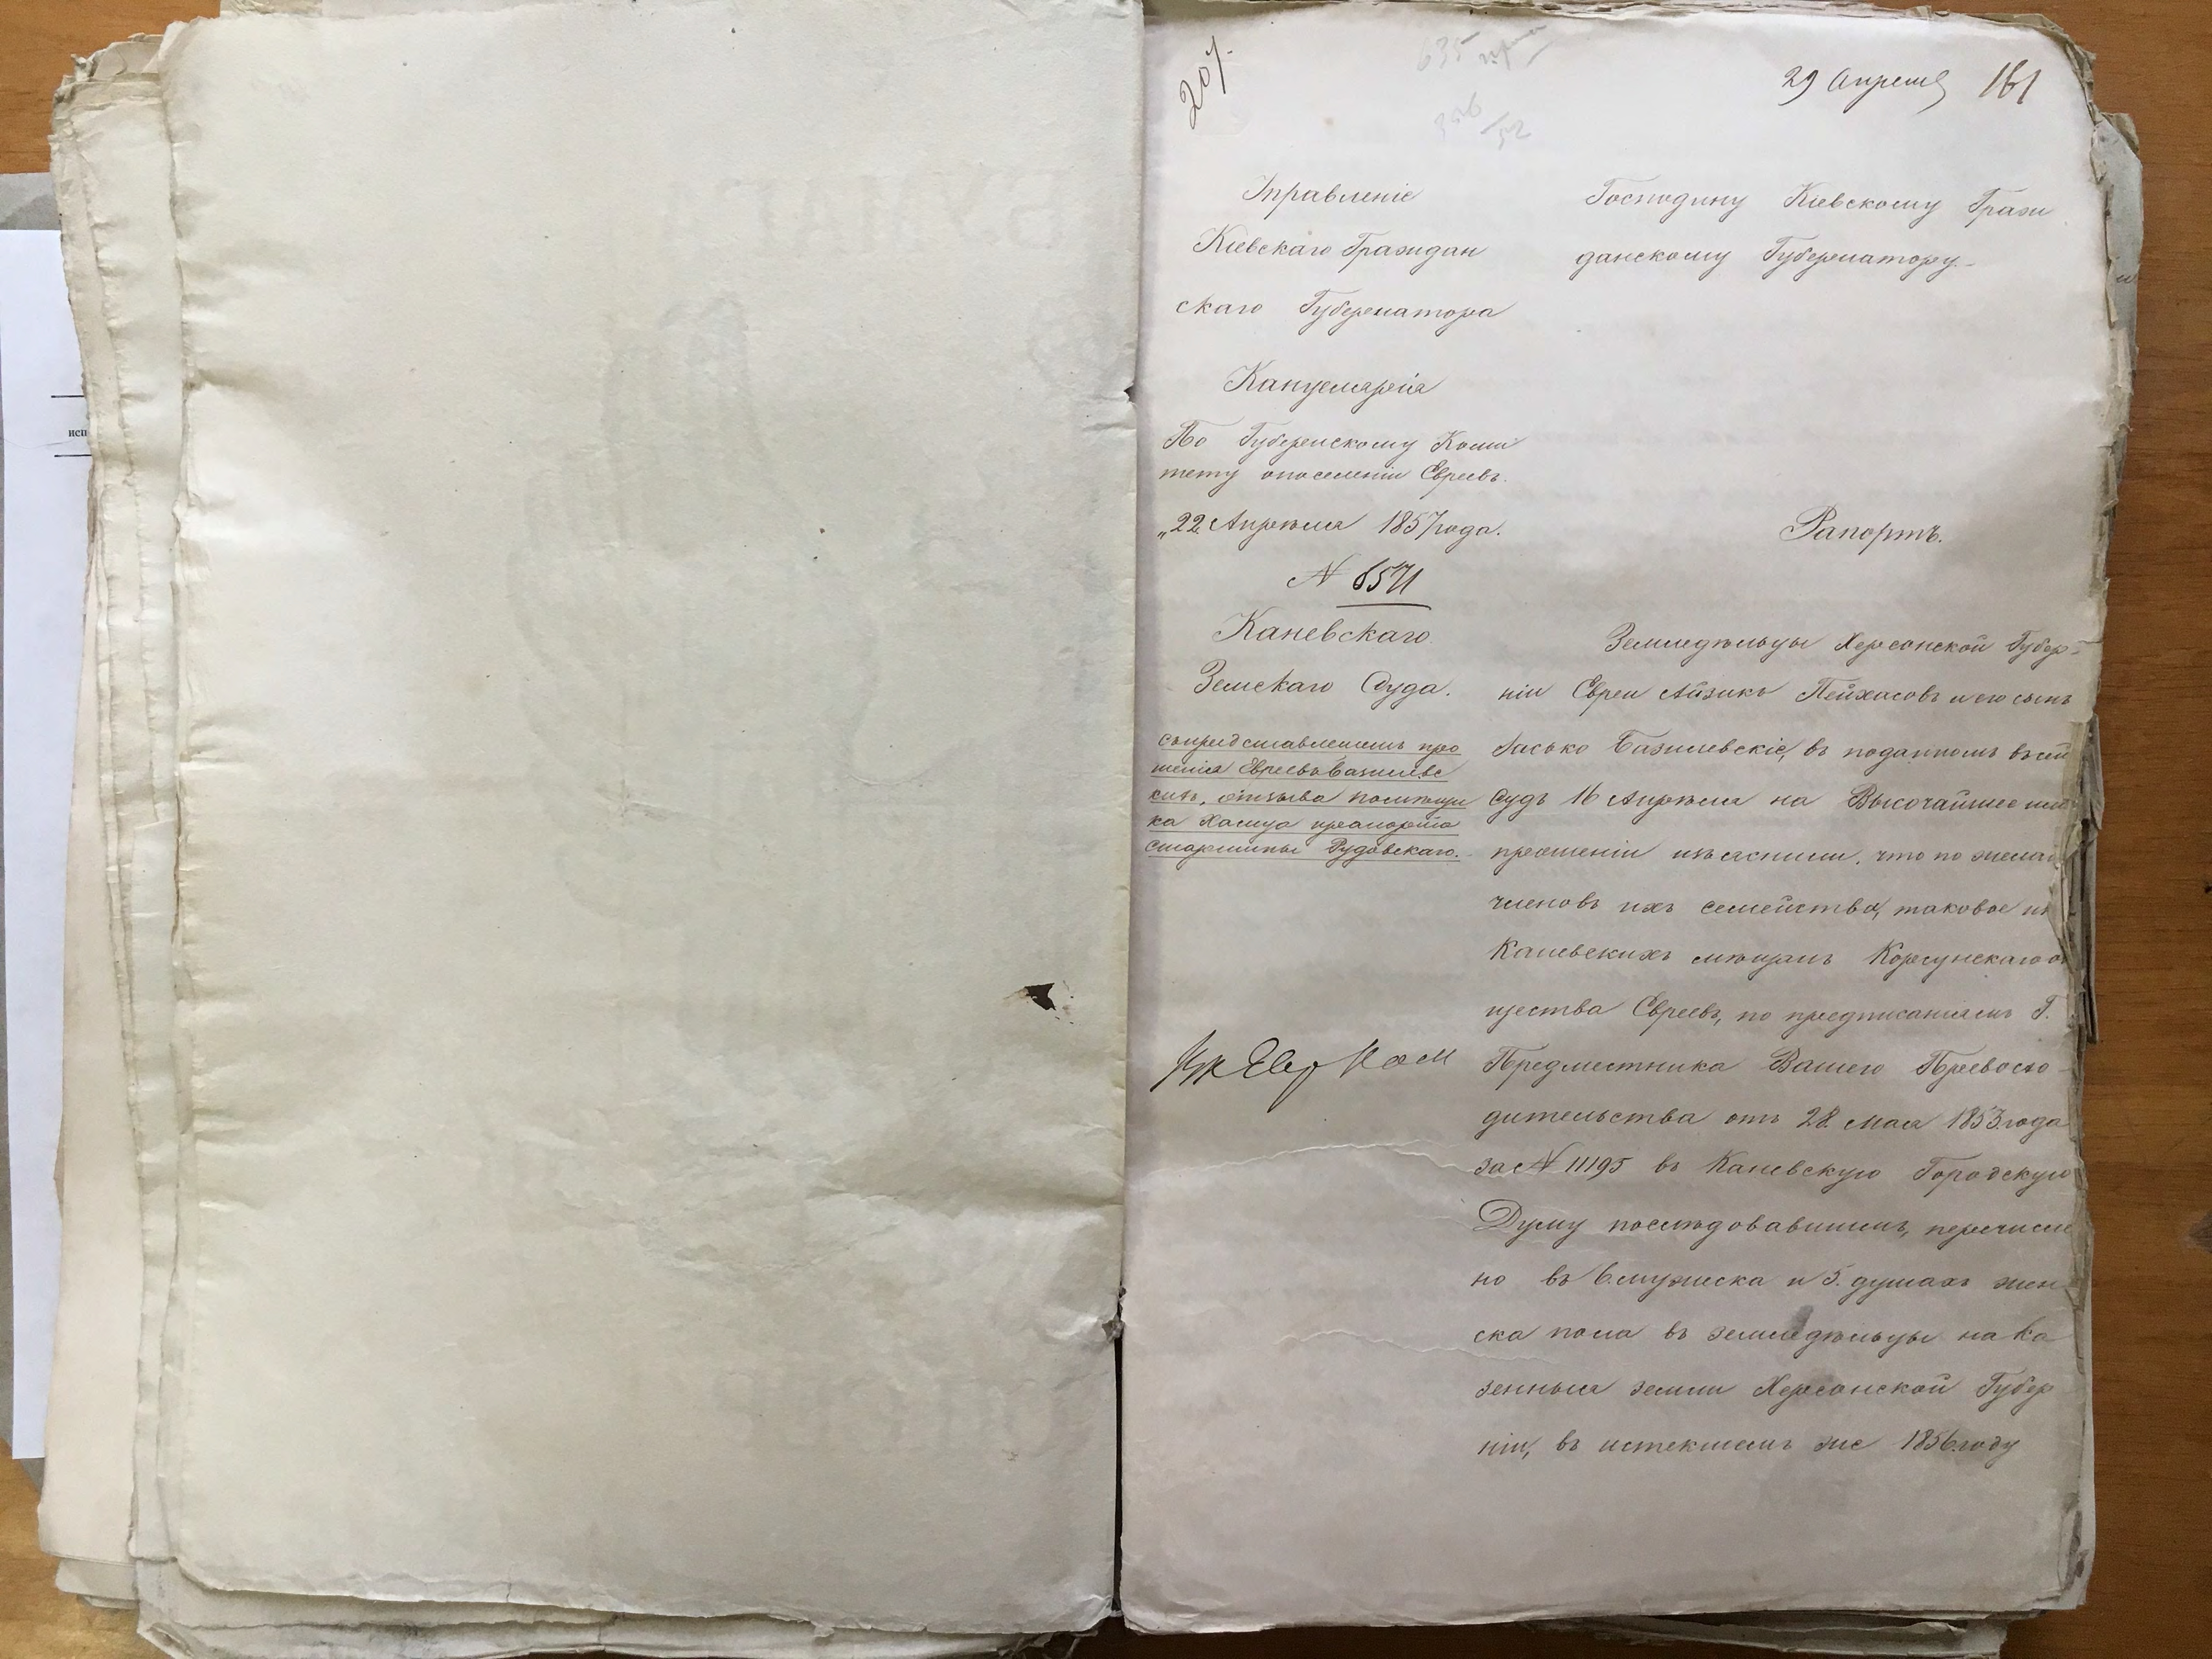 207.
29 Апреля 161
Управленіе
Кіевскаго Граждан
скаго Губернатора
Канцелярія
По Губернскому Коми
тету опоселеніи Евреевъ.
„22 Апрѣля 1857 года.
N 6571
Каневскаго
Земскаго Суда.
съпредставленіемъ про
шенія Евреевъ Базилевс
кихъ, отзыва помѣщи
ка
Старшины Рудовскаго.
Господину Кіевскому Граж
данскому Губернатору.
Рапортъ.
Земледѣльцы Херсонской Губер-
ніи Евреи Айзикъ Пейхасовъ и его сынъ
Іасько Базилевскіе, въ поданномъ въсей
Судъ 16 Апрѣля на Высочайшее имя
прошеніи изъяснили, что по желан
членовъ ихъ семейства, таковое из
Каневскихъ мѣщанъ Корсунскаго об
щества Евреевъ, по предписаніямъ Г.
Предместника Вашего Превосхо-
дительства отъ 28 Мая 1853 года
за N 11195 въ Каневскую Городскую
Думу послѣдовавшимъ, перечисле
но въ 6. мужеска и 5. душахъ жен
ска пола въ земледѣльцы на ка
зенныя земли Херсонской Губер
ніи, въ истекшемъ же 1856 году
исп